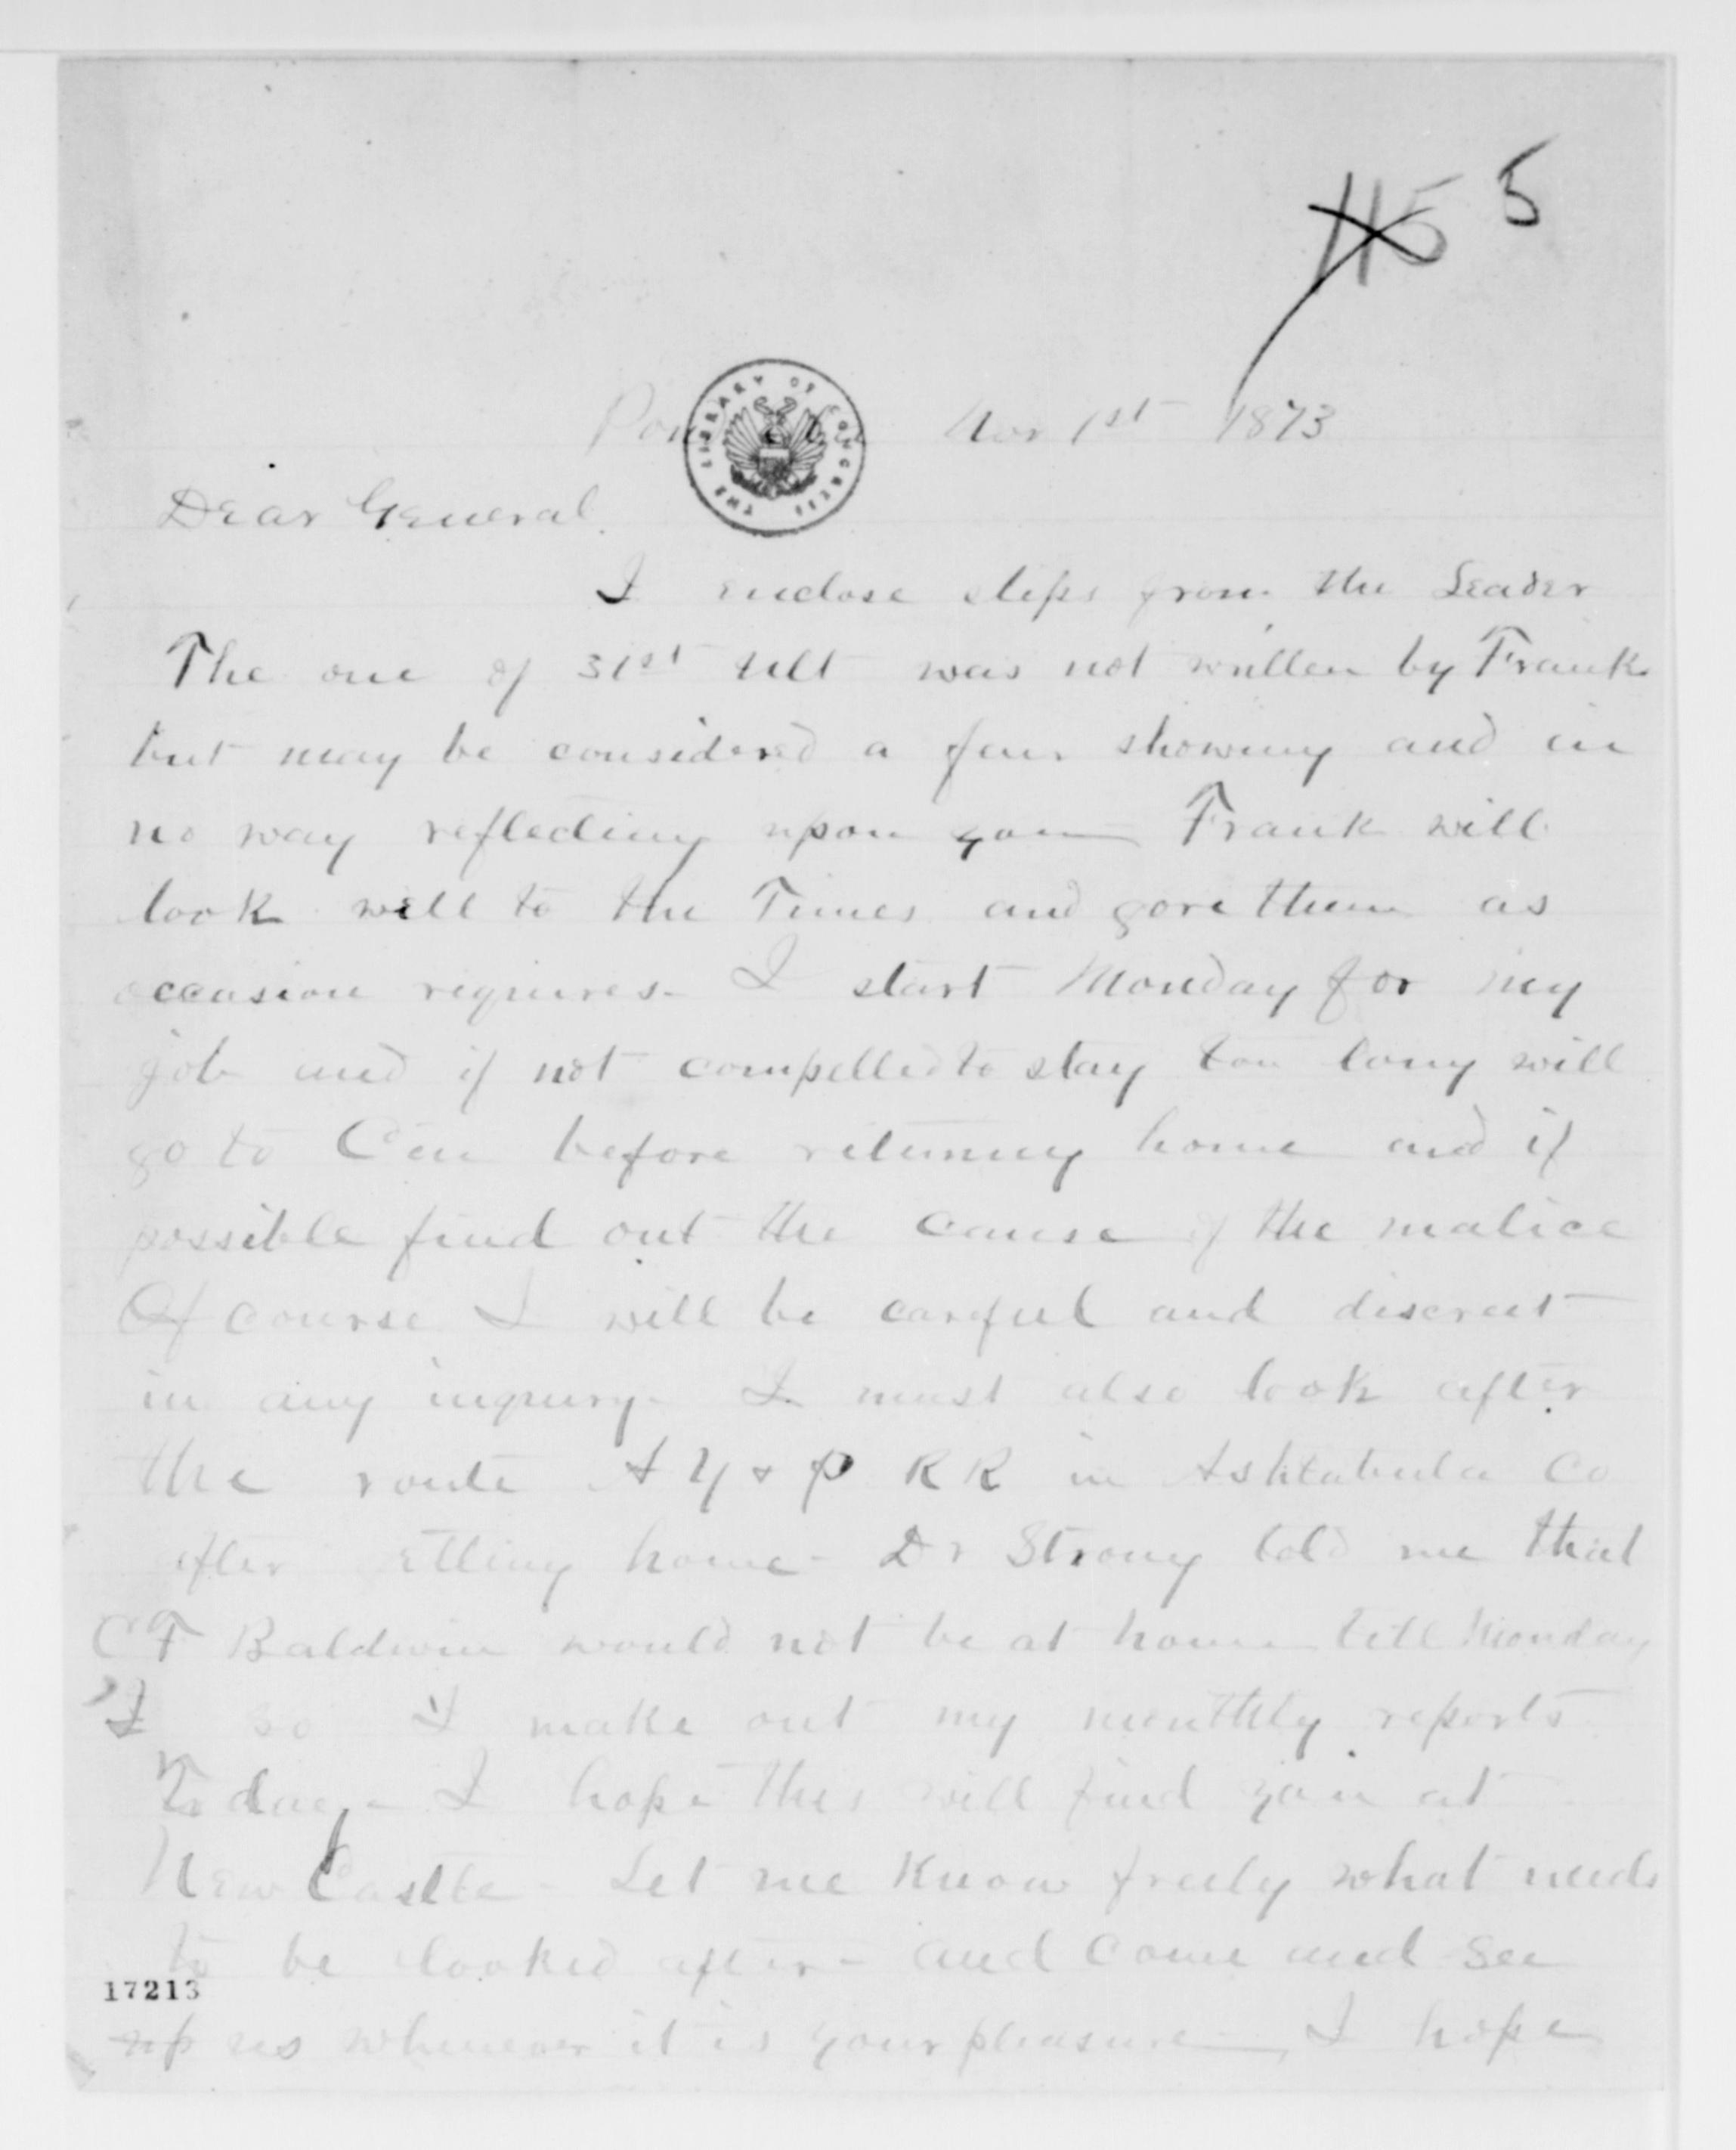 115 5
Nov 1st 1873
THE LIBRARY OF CONGRESS
Dear General.
I enclose slips from the Leader
The one of 31st ult was not written by Frank
but may be considered a fair showing and in
no way reflecting upon you Frank will
look well to the Times and gore them as
occasion requires. I start Monday for my
job and if not compelled to stay too long will
go to Cin before returning home and if
possible find out the cause of the malice
Of course I will be careful and discreet
in any inquiry. I must also look after
the route A Y & P R R in Ashtabula Co
after etting home - Dr Strong told me that
Baldwin would not be at home till Monday
I so I make out my monthly reports
To day - I hope this will find you at
New Castle - Let me know freely what needs
to be looked after - and come and see
17213
up us whenever it is your pleasure - I hope